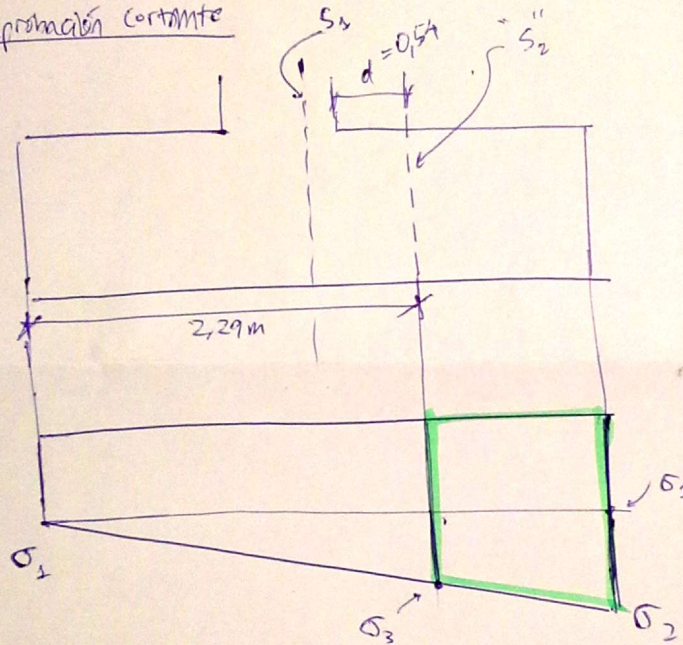 probación cortante
S₁
d=0,54
"S₂"
2,29m
σ₁
σ₁
σ₃
σ₂